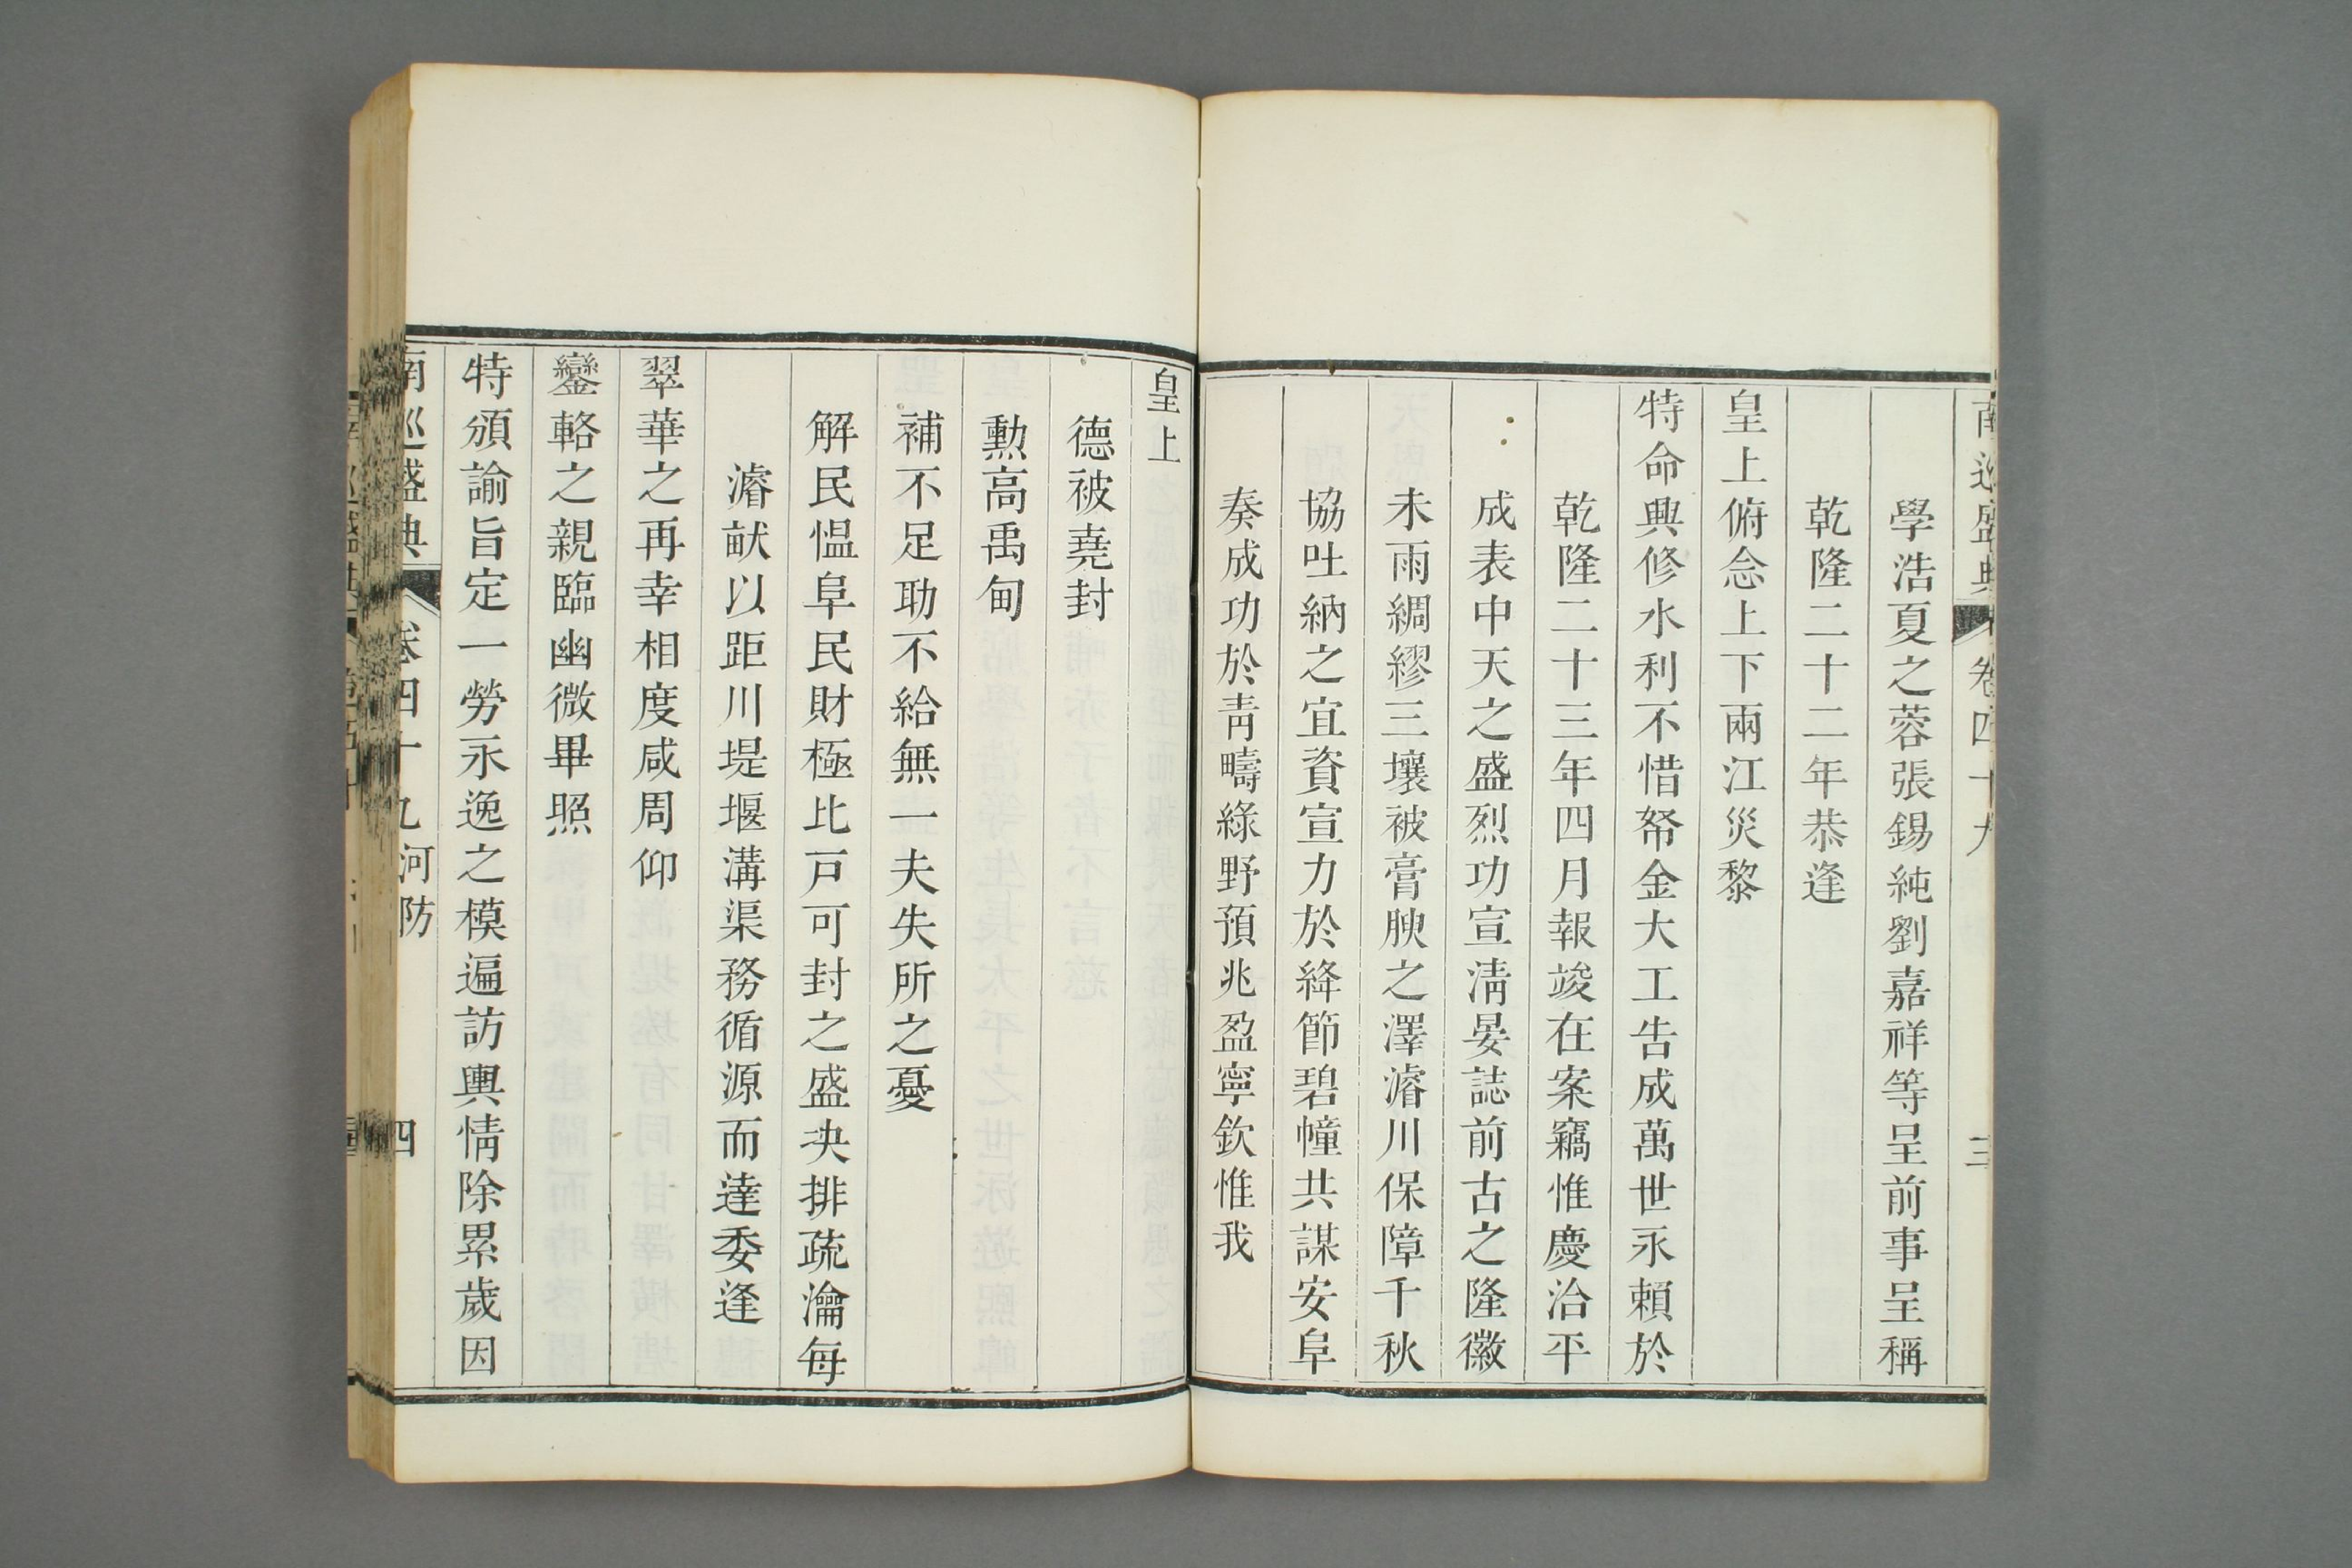 南巡盛典 卷四十九 三
學浩夏之蓉張錫純劉嘉祥等呈前事呈稱
乾隆二十二年恭逢
皇上俯念上下兩江災黎
特命興修水利不惜帑金大工告成萬世永賴於
乾隆二十三年四月報竣在案竊惟慶洽平
成表中天之盛烈功宣淸晏誌前古之隆徽
未雨綢繆三壤被膏腴之澤濬川保障千秋
協吐納之宜資宣力於絳節碧幢共謀安阜
奏成功於靑疇綠野預兆盈寧欽惟我
皇上
德被堯封
勳高禹甸
補不足助不給無一夫失所之憂
解民慍阜民財極比戸可封之盛决排疏瀹每
濬畎以距川堤堰溝渠務循源而達委逢
翠華之再幸相度咸周仰
鑾輅之親臨幽微畢照
特頒諭旨定一勞永逸之模遍訪輿情除累歲因
南巡盛典 卷四十九 河防 四